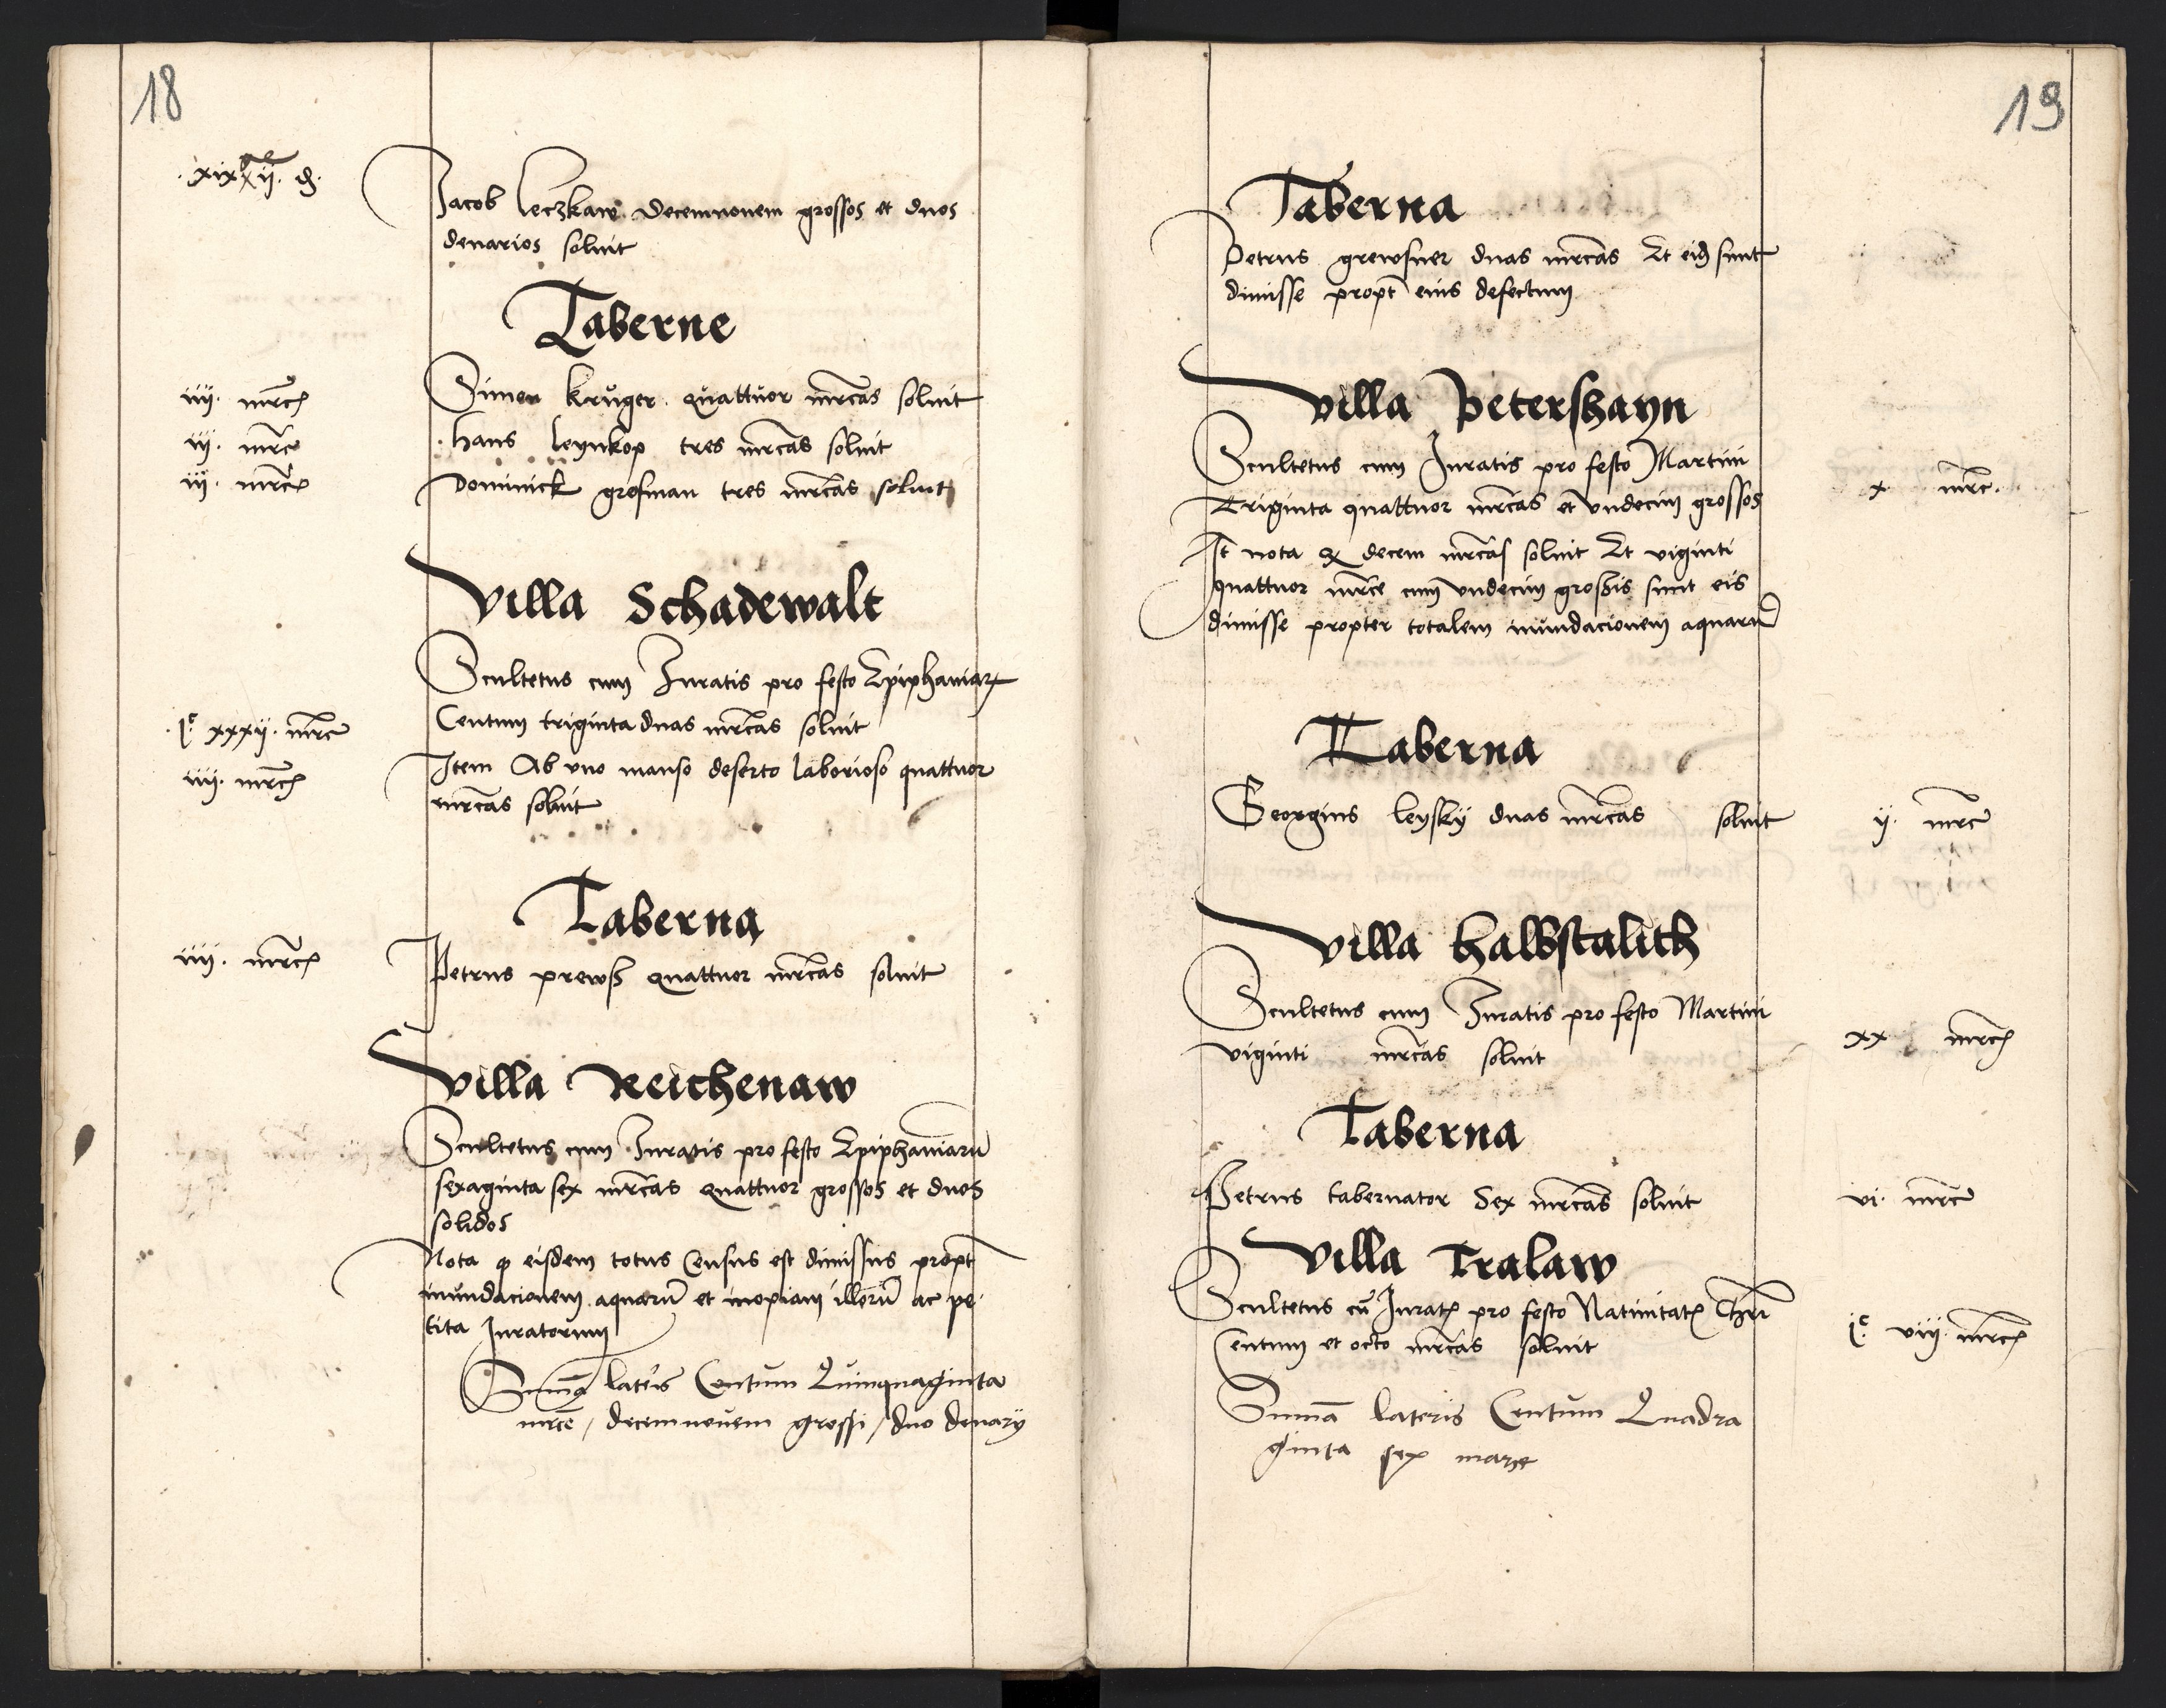 18
.xix gr ij. d.
Jacob leczkaw. Decemnovem grossos et duos
denarios soluit
Taberne
iiij. mrce Simon krůger. quattuor mrcas soluit
iij. mrce hans leynkop tres mrcas soluit
iij. mrce Dominick grosman tres mrcas soluit
Villa Schadewalt
Scultetus cum Juratis pro festo Epiphaniar
.jc xxxij. mrce Centum triginta duas mrcas soluit
iiij. mrce Item Ab uno manso deserto laborioso quattuor
mrcas soluit
Taberna
iiij. mrce Petrus prewß quattuor mrcas soluit
Villa Reichenaw
Scultetus cum Juratis pro festo Epiphaniarū
sexaginta sex mrcas quattuor grossos et duos
solidos
Nota q eisdem totus Census est dimissus propt
inundacionem aquarū et inopiam illorū ac pe
tita Juratorum
Suma lateris Centum Quinquaginta
mrce / decemnovem grossi / duo denarij
19
Taberna
Petrus grewsner duas mrcas Et eid sunt
dimisse propt eius defectum
Villa Petershayn
Scultetus cum Juratis pro festo Martini
Triginta quattuor mrcas et undecim grossos x mrc.
It nota q decem mrcas soluit Et viginti
quattuor mrce cum undecim grossis sunt eis
dimisse propter totalem inundacionem aquarū
Taberna
Georgius leysky duas mrcas soluit ij. mrce
Villa halbstalith
Scultetus cum Juratis pro festo Martini
viginti mrcas soluit xx mrce
Taberna
Petrus tabernator Sex mrcas soluit vi. mrce
Villa Tralaw
Scultetus cū Jurat pro festo Natiuitat Chri
Centum et octo mrcas soluit jc viij. mrce
Suma lateris Centum Quadra
ginta sex marce